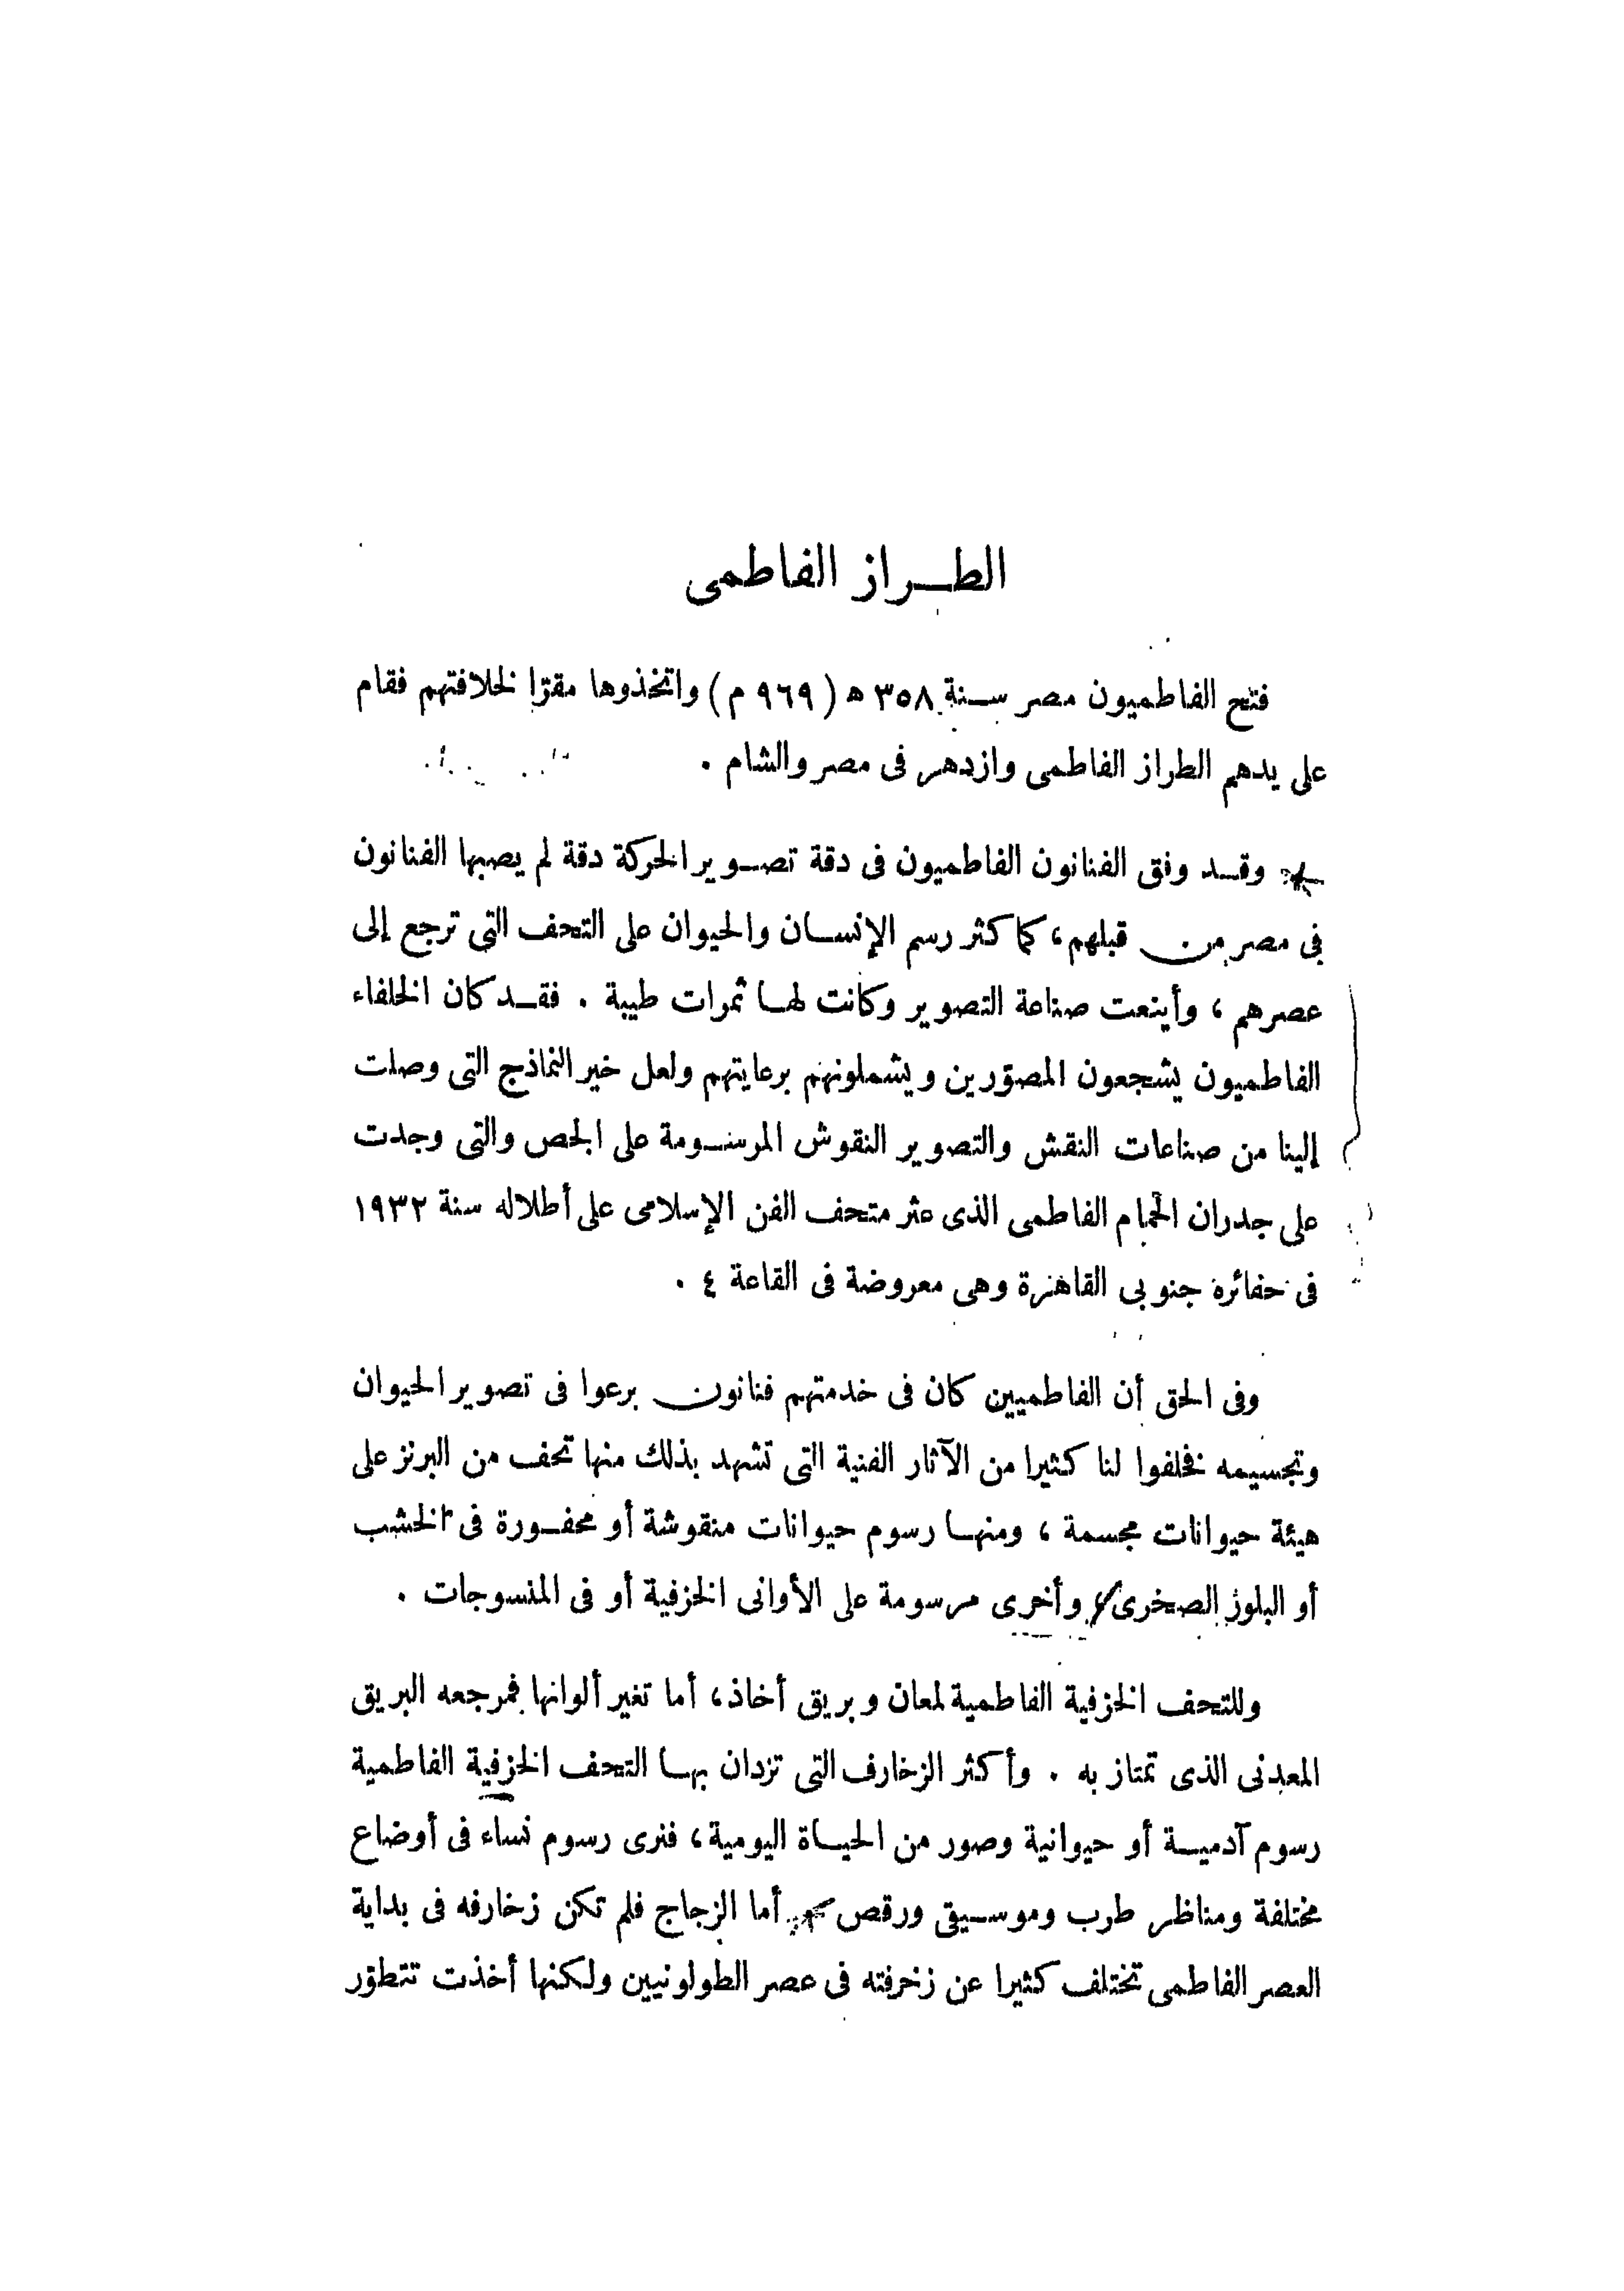 الطراز الفاطمى
فتح الفاطميون مصر سنة ٣٥٨ ه (٩٦٩ م) واتخذوها مقرّا لخلافتهم فقام
على يدهم الطراز الفاطمى وازدهر فى مصر والشام .
وقد وفق الفنانون الفاطميون فى دقة تصوير الحركة دقة لم يصبها الفنانون
فى مصر من قبلهم، كما كثر رسم الإنسان والحيوان على التحف التى ترجع إلى
عصرهم ، وأينعت صناعة التصوير وكانت لها ثمرات طيبة . فقد كان الخلفاء
الفاطميون يشجعون المصوّرين ويشملونهم برعايتهم ولعل خير النماذج التى وصلت
إلينا من صناعات النقش والتصوير النقوش المرسومة على الجص والتى وجدت
على جدران الحمام الفاطمى الذى عثر متحف الفن الإسلامى على أطلاله سنة ١٩٣٢
فى حفائره جنوبى القاهرة وهى معروضة فى القاعة ٤ .
وفى الحق أن الفاطميين كان فى خدمتهم فنانون برعوا فى تصوير الحيوان
وتجسيمه فخلفوا لنا كثيرا من الآثار الفنية التى تشهد بذلك منها تحف من البرنز على
هيئة حيوانات مجسمة ، ومنها رسوم حيوانات منقوشة أو محفورة فى الخشب
أو البلور الصخرى، وأخرى مرسومة على الأوانى الخزفية أو فى المنسوجات .
وللتحف الخزفية الفاطمية لمعان وبريق أخاذ، أما تغير ألوانها فمرجعه البريق
المعدنى الذى تمتاز به . وأكثر الزخارف التى تزدان بها التحف الخزفية الفاطمية
رسوم آدمية أو حيوانية وصور من الحياة اليومية، فنرى رسوم نساء فى أوضاع
مختلفة ومناظر طرب وموسيقى ورقص أما الزجاج فلم تكن زخارفه فى بداية
العصر الفاطمى تختلف كثيرا عن زخرفته فى عصر الطولونيين ولكنها أخذت تتطوّر